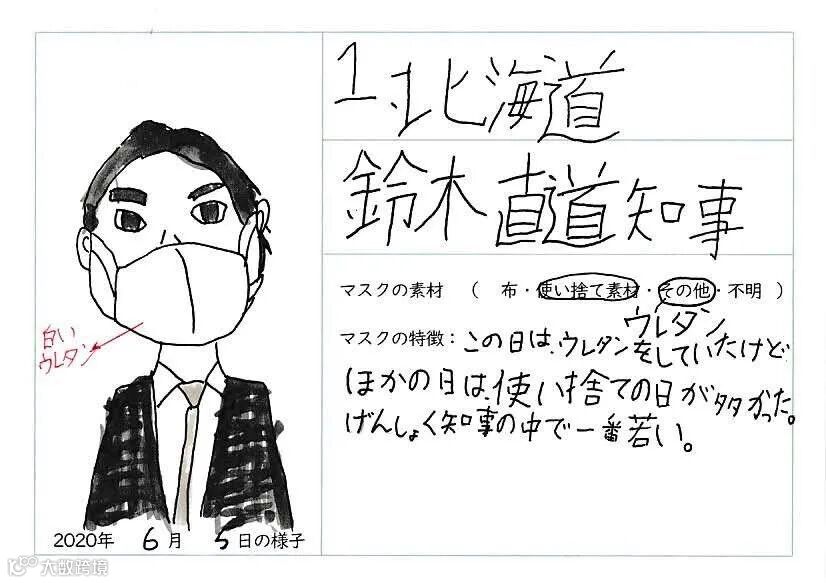 1.北海道
鈴木直道知事
マスクの素材 ( 布・使い捨て素材・その他・不明 )
ウレタン
マスクの特徴：この日は、ウレタンをしていたけど
ほかの日は、使い捨ての日が多かった。
げんしょく知事の中で一番若い。
白い
ウレタン
2020年 6月 5日の様子
大数跨境